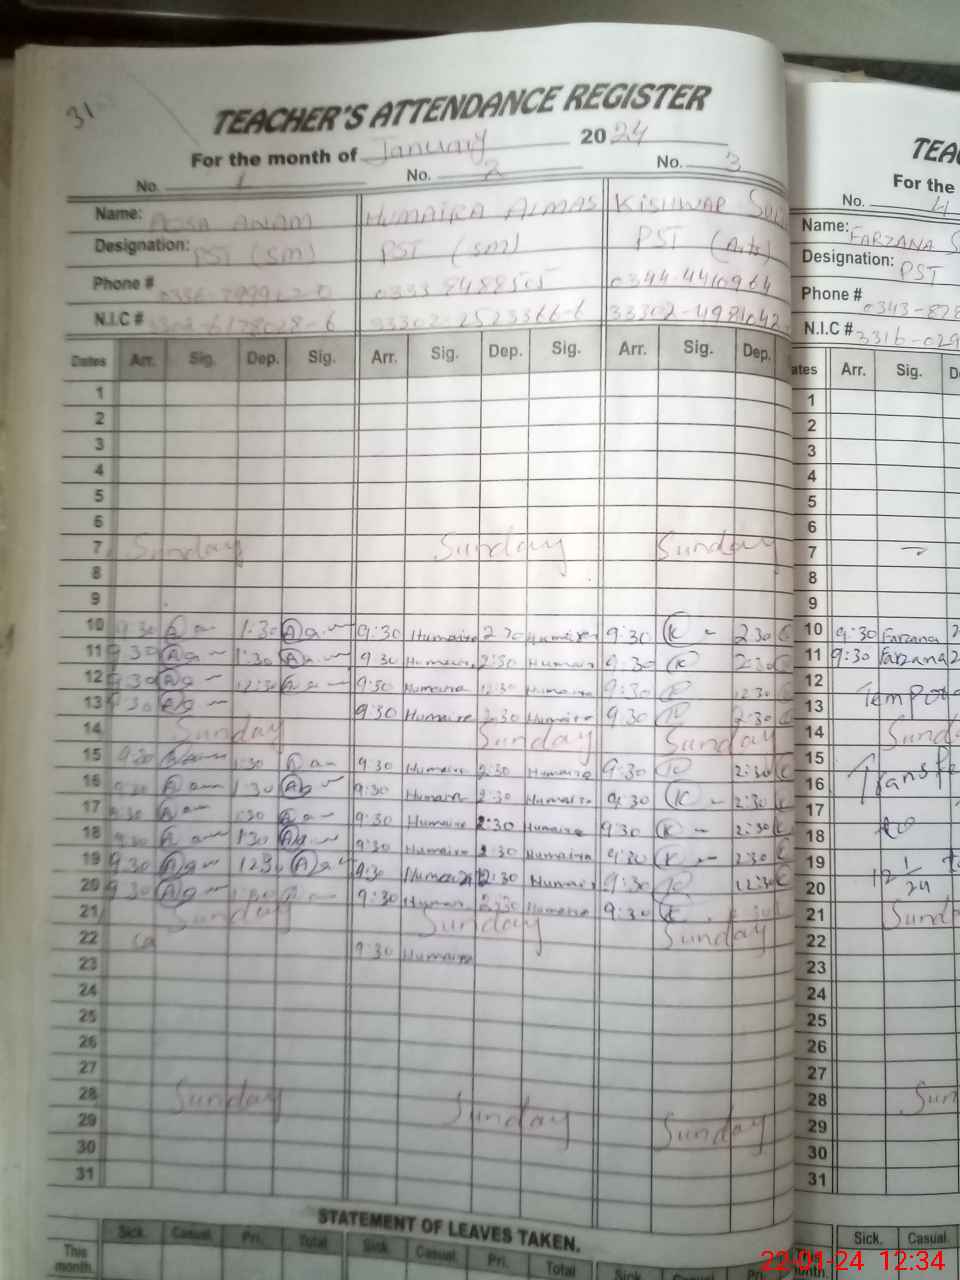 31
TEACHER'S ATTENDANCE REGISTER
For the month of January 2024
No. 1 No. 2 No. 3
Name: AQSA ANAM HUMAIRA ALMAS KISHWAR
Designation: PST (SM) PST (SM) PST (Arts)
Phone # 0344-4410964
N.I.C # 33302-2523366-6 33302-4981042
Dates Arr. Sig. Dep. Sig. Arr. Sig. Dep. Sig. Arr. Sig. Dep.
1
2
3
4
5
6
7 Sunday Sunday Sunday
8
9
10 9:30 1:30 9:30 Humaira 2:30 Humaira 9:30 K 2:30
11 9:30 1:30 9:30 Humaira 2:30 Humaira 9:30 K 2:30
12 9:30 12:30 9:30 Humaira 12:30 Humaira 9:30 12:30
13 9:30 9:30 Humaira 2:30 Humaira 9:30 2:30
14 Sunday Sunday Sunday
15 9:30 1:30 9:30 Humaira 2:30 Humaira 9:30 2:30
16 9:30 1:30 9:30 Humaira 2:30 Humaira 9:30 K 2:30
17 9:30 1:30 9:30 Humaira 2:30 Humaira 9:30 K 2:30
18 9:30 1:30 9:30 Humaira 2:30 Humaira 9:30 K 2:30
19 9:30 12:30 9:30 Humaira 12:30 Humaira 9:30 12:30
20 9:30 9:30 Humaira 2:30 Humaira 9:30 K
21 Sunday Sunday Sunday
22 9:30 Humaira
23
24
25
26
27
28 Sunday Sunday Sunday
29
30
31
STATEMENT OF LEAVES TAKEN.
Sick. Casual. Pri. Total Sick. Casual. Pri. Total Sick. Casual. Pri.
This month.
TEA
For the
No. 4
Name: FARZANA
Designation: PST
Phone # 0343-828
N.I.C # 3316-029
ates Arr. Sig. D
1
2
3
4
5
6
7 -
8
9
10 9:30 Farzana 2
11 9:30 Farzana 2
12
13 Tempo
14 Sund
15
16 Transfe
17
18 to
19
20 12 1/24
21 Sund
22
23
24
25
26
27
28 Sun
29
30
31
Sick. Casual
This month.
22-01-24 12:34